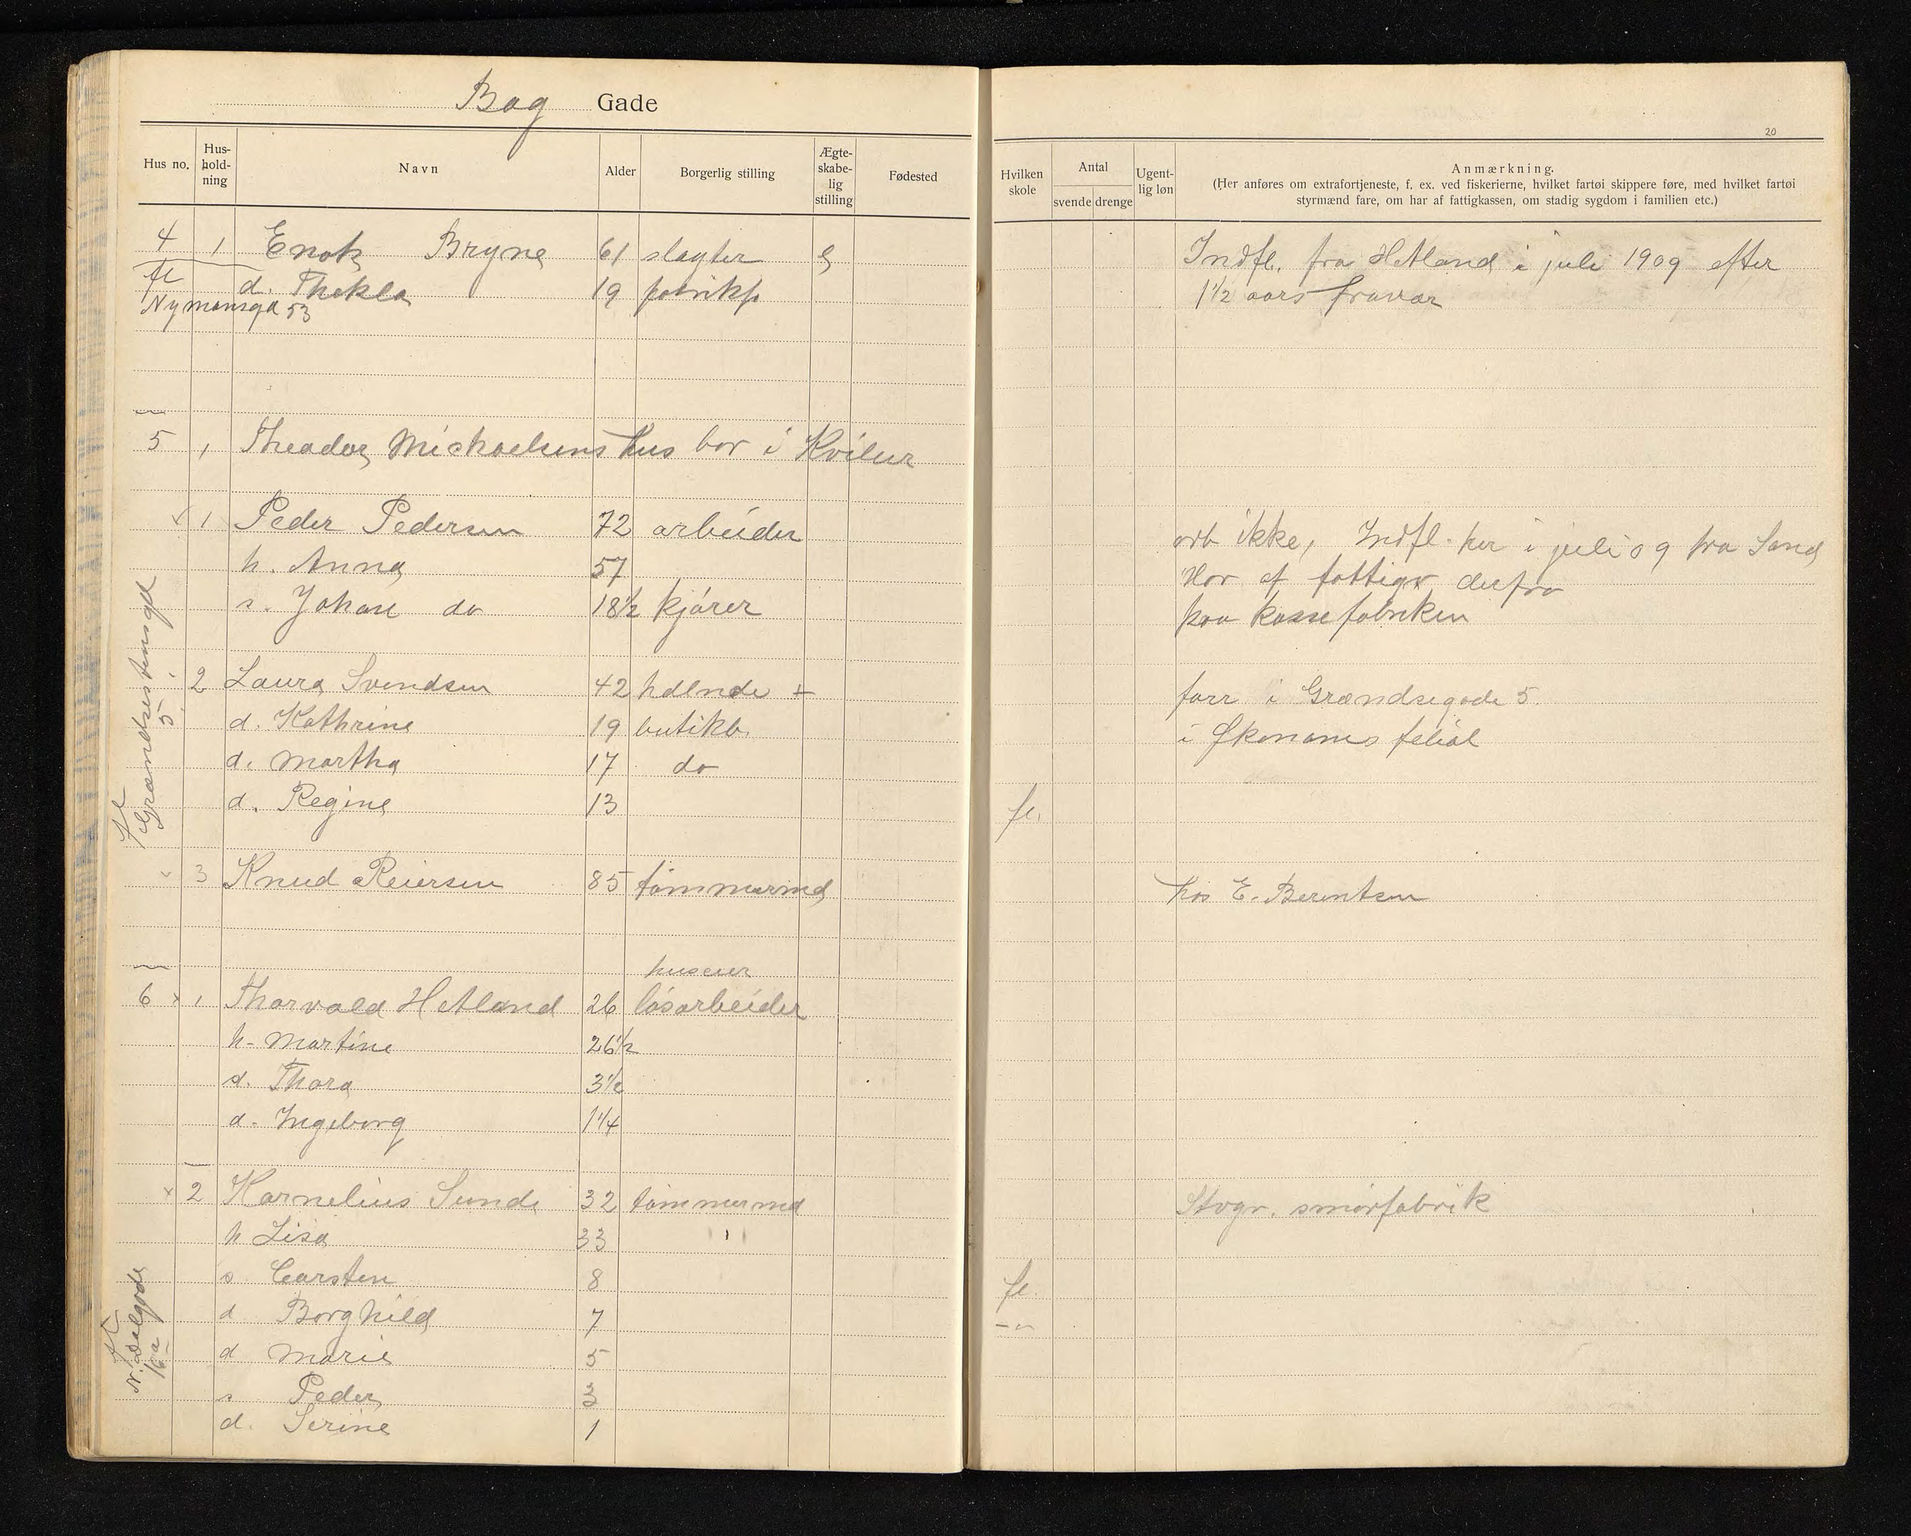 Bag Gade
Hus no. Hus-hold-ning Navn Alder Borgerlig stilling Ægte-skabe-lig stilling Fødested
4 1 Enok Bryne 61 slagter g
fl d. Thekla 19 fabrikp
Nymansgd 53
5 1 Theodor Michaelsens hus bor i Kvilur
1 Peder Pedersen 72 arbeider
h. Anna 57
s. Johan do 18½ kjører
fl Grændsestensgd 5
2 Laura Svendsen 42 hdlnde +
d. Kathrine 19 butikb.
d. Martha 17 do
d. Regine 13
3 Knud Reiersen 85 tømmermd
huseier
6 x 1 Thorvald Hetland 26 løsarbeider
h. Martine 26½
d. Thora 3½
d. Ingeborg 1¼
x 2 Kornelius Sunde 32 tømmermd
h Lisa 33
s Carsten 8
d Borghild 7
d Marie 5
s Peder 3
d. Serine 1
fl N. Dalgade 16a
20
Hvilken skole Antal svende drenge Ugent-lig løn Anmærkning.
(Her anføres om extrafortjeneste, f. ex. ved fiskerierne, hvilket fartøi skippere føre, med hvilket fartøi
styrmænd fare, om har af fattigkassen, om stadig sygdom i familien etc.)
Indfl. fra Hetland i juli 1909 efter
1½ aars fravær
arb ikke, Indfl. her i juli 09 fra Sand
Har af fattigv derfra
paa kassefabriken
forr i Grændsegade 5.
i Økonoms filial
fl.
hos E. Berentsen
Stvgr. smørfabrik
fl.
-"-